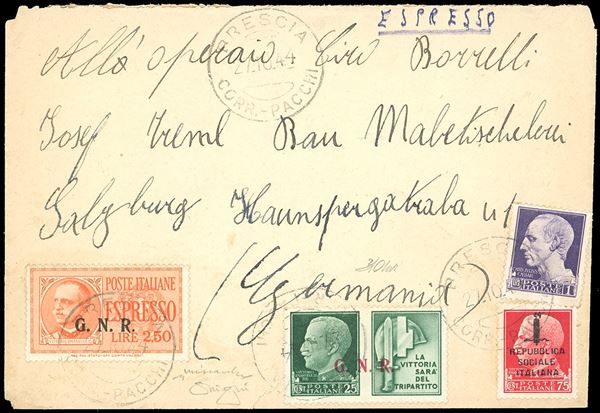 ESPRESSO
BRESCIA
27.10.44
CORR.-PACCHI
All'operaio Ciro Borrelli
Josef Treml Bau
Salzburg
(Germania)
POSTE ITALIANE
ESPRESSO
G. N. R.
LIRE 2,50
POSTE ITALIANE
25
G. N. R.
LA
VITTORIA
SARÀ DEL
TRIPARTITO
BRESCIA
POSTE ITALIANE
REPUBBLICA
SOCIALE
ITALIANA
POSTE ITALIANE
75